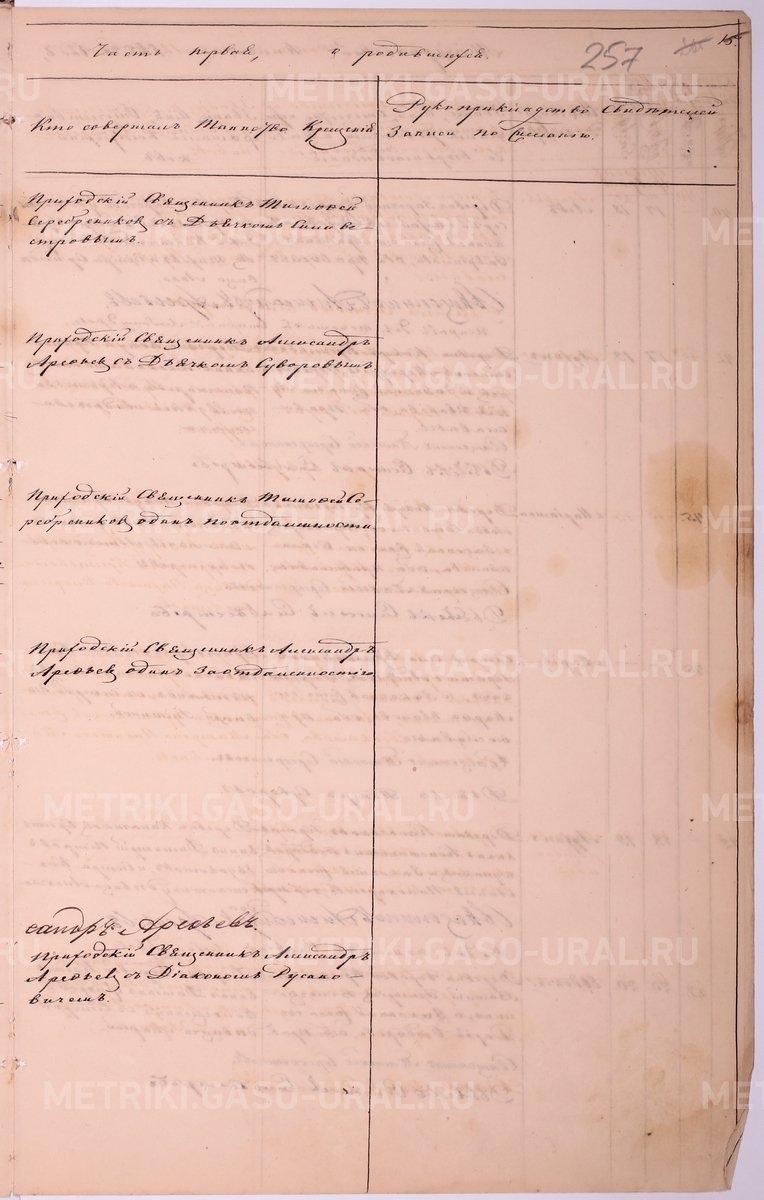 Часть первая, о родившихся.
257
15.
Кто совершалъ Таинство Крещенія
Рукоприкладство Свидѣтелей
Записи по Желанію.
Приходскій Священникъ Тимофей
Серебрениковъ съ Дьячкомъ Сильве-
стровымъ.
Приходскій Священникъ Александръ
Арефьевъ съ Дьячкомъ Суворовымъ
Приходскій Священникъ Тимофей Се-
ребрениковъ одинъ по отдаленности
Приходскій Священникъ Александръ
Арефьевъ одинъ За отдаленностію
сандръ Арефьевъ.
Приходскій Священникъ Александръ
Арефьевъ съ Діакономъ Русано-
вичемъ.
METRIKI.GASO-URAL.RU